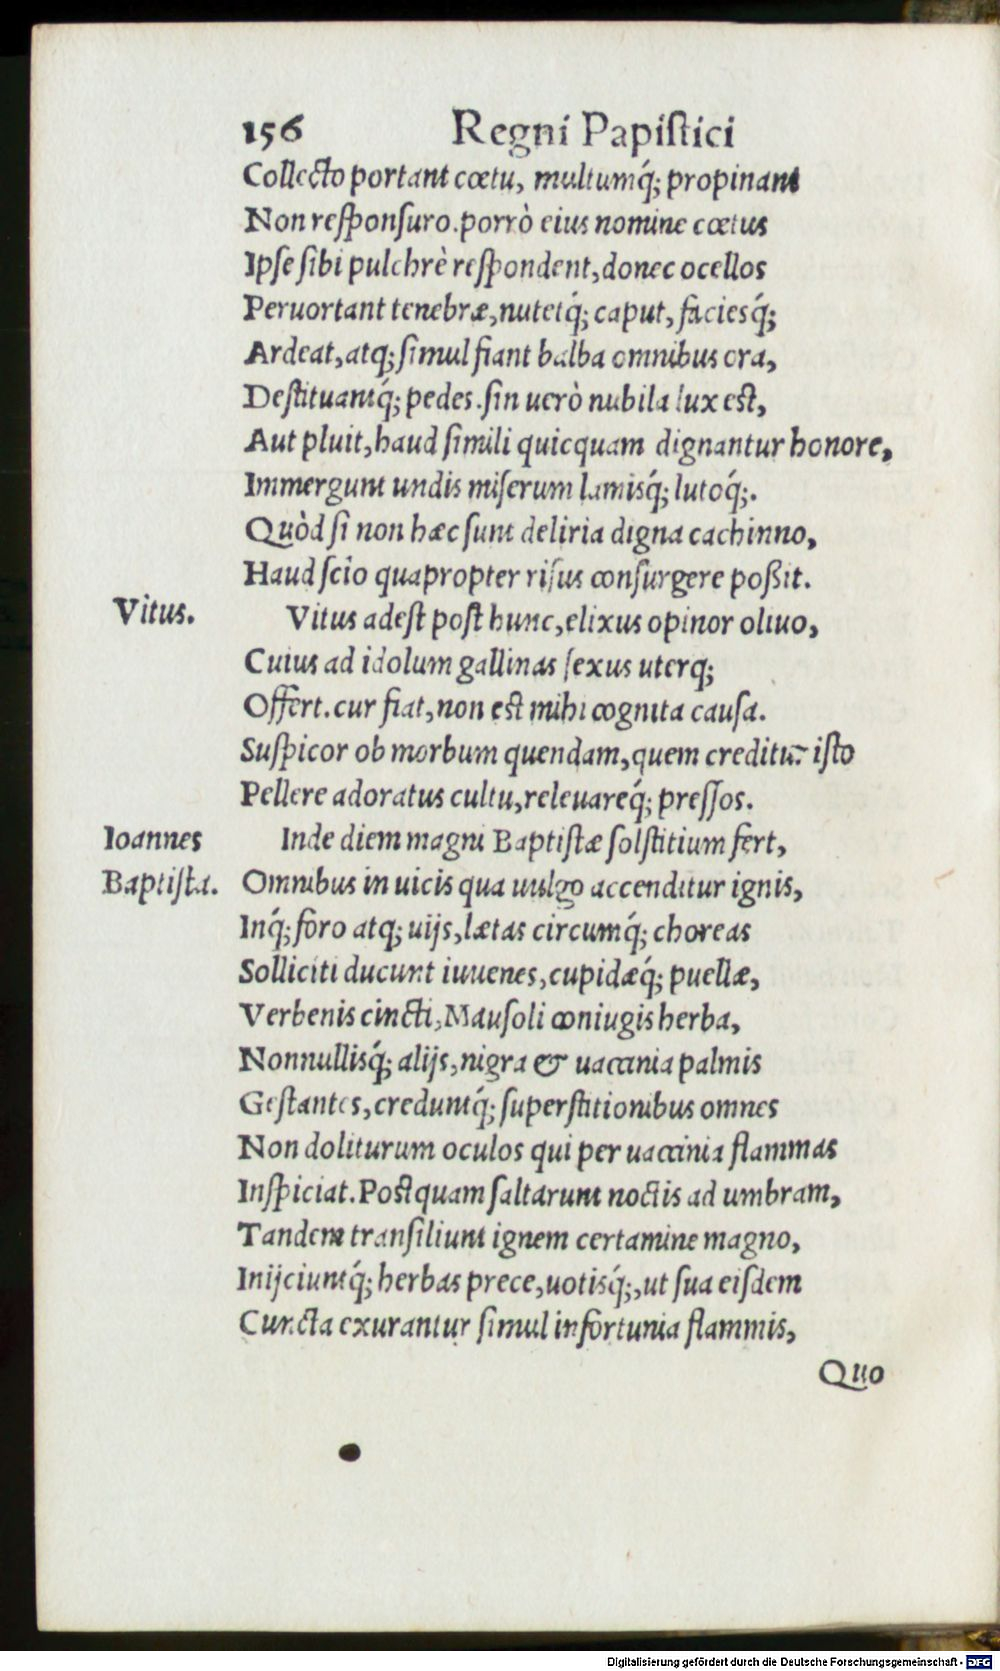 156 Regni Papiſtici
Collecto portant cœtu, multumq́; propinant
Non reſponſuro. porrò eius nomine cœtus
Ipſe ſibi pulchrè reſpondent, donec ocellos
Peruortant tenebræ, nutetq́; caput, faciesq́;
Ardeat, atq; ſimul fiant balba omnibus ora,
Deſtituantq́; pedes. ſin uerò nubila lux eſt,
Aut pluit, haud ſimili quicquam dignantur honore,
Immergunt undis miſerum lamisq́; lutoq́;.
Quòd ſi non hæc ſunt deliria digna cachinno,
Haud ſcio quapropter riſus conſurgere poßit.
Vitus.
Vitus adeſt poſt hunc, elixus opinor oliuo,
Cuius ad idolum gallinas ſexus uterq;
Offert. cur fiat, non eſt mihi cognita cauſa.
Suſpicor ob morbum quendam, quem creditur iſto
Pellere adoratus cultu, releuareq́; preſſos.
Ioannes
Baptiſta.
Inde diem magni Baptiſtæ ſolſtitium fert,
Omnibus in uicis qua uulgo accenditur ignis,
Inq́; foro atq; uijs, lætas circumq́; choreas
Solliciti ducunt iuuenes, cupidæq́; puellæ,
Verbenis cincti, Mauſoli coniugis herba,
Nonnullisq́; alijs, nigra & uaccinia palmis
Geſtantes, creduntq́; ſuperſtitionibus omnes
Non doliturum oculos qui per uaccinia flammas
Inſpiciat. Poſtquam ſaltarunt noctis ad umbram,
Tandem tranſiliunt ignem certamine magno,
Inijciuntq́; herbas prece, uotisq́;, ut ſua eiſdem
Cuncta exurantur ſimul infortunia flammis,
Quo
Digitalisierung gefördert durch die Deutsche Forschungsgemeinschaft - DFG